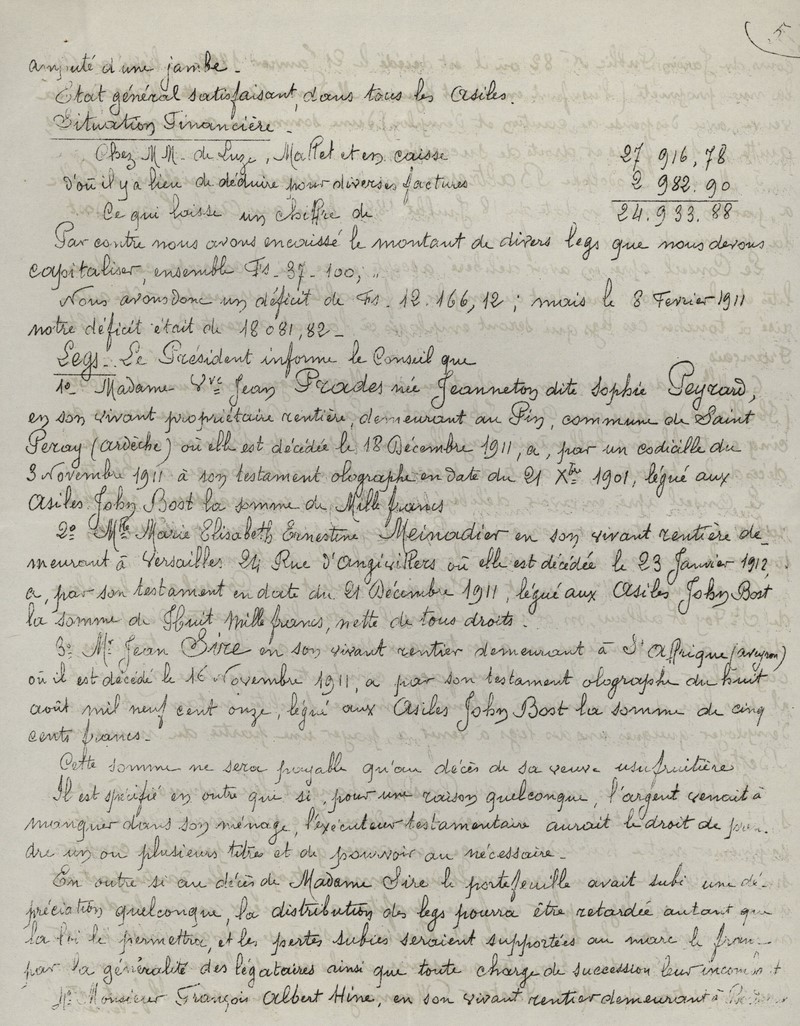 5
amputé d'une jambe _
Etat général satisfaisant, dans tous les Asiles.
Situation Financière _
Chez MM. de Luze, Mallet et en caisse 27 916,78
d'où il y a lieu de déduire pour diverses factures 2 982.90
Ce qui laisse un chiffre de 24.933.88
Par contre nous avons encaissé le montant de divers legs que nous devons
capitaliser, ensemble Fs _ 37 _ 100, "
Nous avons donc un déficit de Fs. 12.166,12 ; mais le 8 Fevrier 1911
notre déficit était de 18 081,82 _
Legs _ Le Président informe le Conseil que
1º Madame Vve Jean Prades née Jeanneton dite Sophie Peyrard,
en son vivant propriétaire rentière, demeurant au Pin, commune de Saint
Peray (ardèche) où elle est décédée le 18 Décembre 1911, a, par un codicille du
3 Novembre 1911 à son testament olographe en date du 21 Xbre 1901, légué aux
Asiles John Bost la somme de Mille francs
2º Mlle Marie Elisabeth Ernestine Meinadier en son vivant rentière de_
meurant à Versailles 24 Rue d'Angivillers où elle est décédée le 23 Janvier 1912,
a, par son testament en date du 21 Décembre 1911, légué aux Asiles John Bost
la somme de Huit mille francs, nette de tous droits.
3º Mr Jean Sire en son vivant rentier demeurant à St Affrique (aveyron)
où il est décédé le 16 Novembre 1911, a par son testament olographe du huit
août mil neuf cent onze, légué aux Asiles John Bost la somme de cinq
cents francs _
Cette somme ne sera payable qu'au décès de sa veuve usufruitière
Il est spécifié en outre que si, pour une raison quelconque, l'argent venait à
manquer dans son ménage, l'exécuteur testamentaire aurait le droit de pren_
dre un ou plusieurs titres et de pourvoir au nécessaire _
En outre si au décès de Madame Sire le portefeuille avait subi une dé_
préciation quelconque, la distribution des legs pourra être retardée autant que
la loi le permettra, et les pertes subies seraient supportées au marc le franc
par la généralité des légataires ainsi que toute charge de succession leur incombant
4º Monsieur François Albert Hine, en son vivant rentier demeurant à